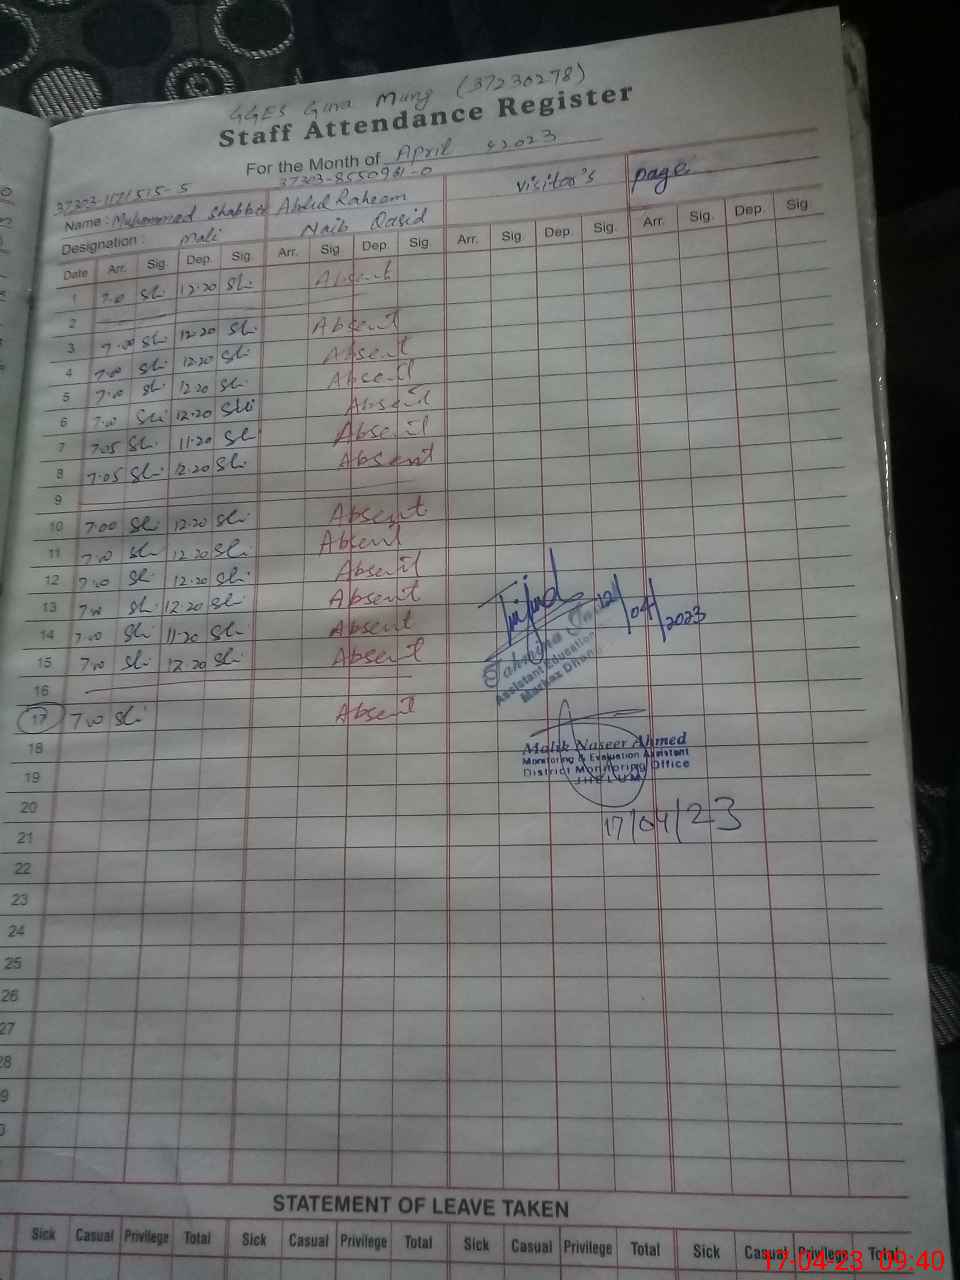 GGES Gura Mung (37230278)
Staff Attendance Register
For the Month of April 2023
37303-1171515-5 37303-8550981-0
Name : Muhammad Shabbir Abdul Raheem visitor's page
Designation : Mali Naib Qasid
Date Arr. Sig. Dep. Sig. Arr. Sig. Dep. Sig. Arr. Sig. Dep. Sig. Arr. Sig. Dep. Sig.
1 7.00 Sh: 12.20 Sh: Absent
2
3 7.00 Sh: 12.20 Sh: Absent
4 7.00 Sh: 12.20 Sh: Absent
5 7.00 Sh: 12.20 Sh: Absent
6 7.00 Sh: 12.20 Sh: Absent
7 7.05 Sh: 11.20 Sh: Absent
8 7.05 Sh: 12.20 Sh: Absent
9
10 7.00 Sh: 12.20 Sh: Absent
11 7.00 Sh: 12.20 Sh: Absent
12 7.00 Sh: 12.20 Sh: Absent
13 7.00 Sh: 12.20 Sh: Absent
14 7.00 Sh: 11.20 Sh: Absent
15 7.00 Sh: 12.20 Sh: Absent
16
17 7.00 Sh: Absent
18
19
20
21
22
23
24
25
26
27
12/04/2023
Tahmina
Assistant Education
Markaz
Malik Naseer Ahmed
Monitoring & Evaluation Assistant
District Monitoring Office
JHELUM
17/04/23
STATEMENT OF LEAVE TAKEN
Sick Casual Privilege Total Sick Casual Privilege Total Sick Casual Privilege Total Sick Casual Privilege Total
17-04-23 09:40